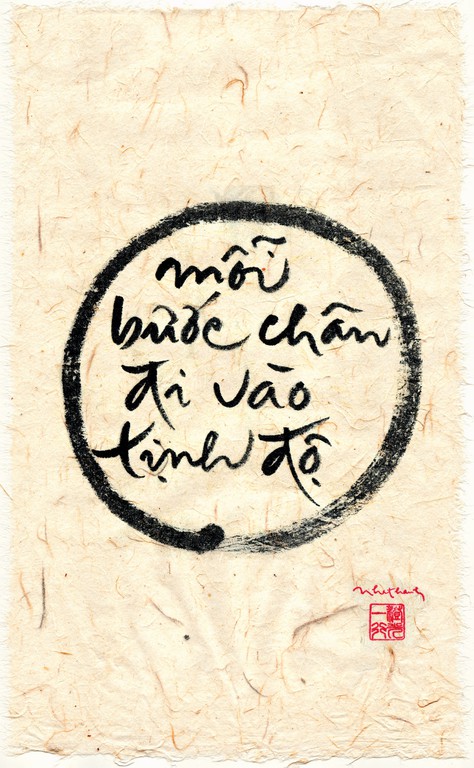 mỗi
bước chân
đi vào
tịnh độ
nhất hạnh